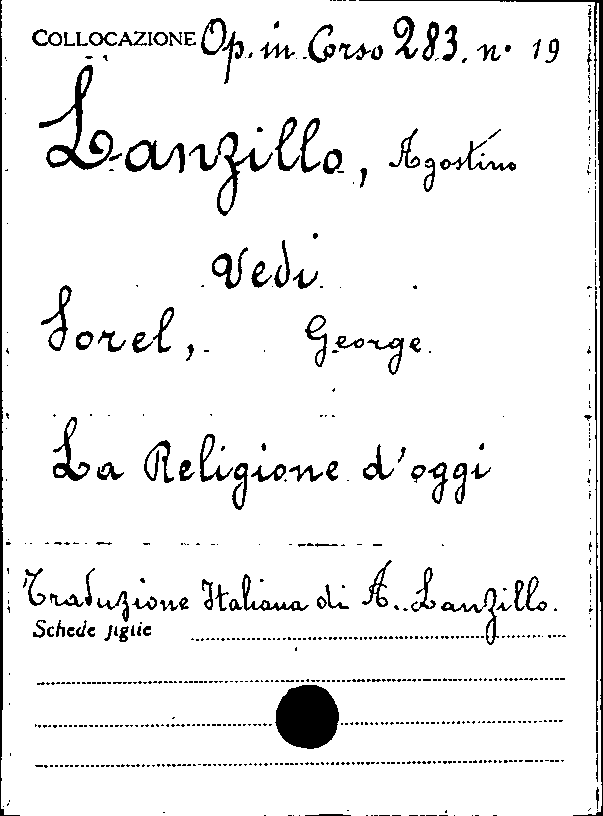 COLLOCAZIONE Op. in Corso 283. n. 19
Lanzillo, Agostino
Vedi
Sorel, George
La Religione d'oggi
Traduzione Italiana di A. Lanzillo.
Schede figlie